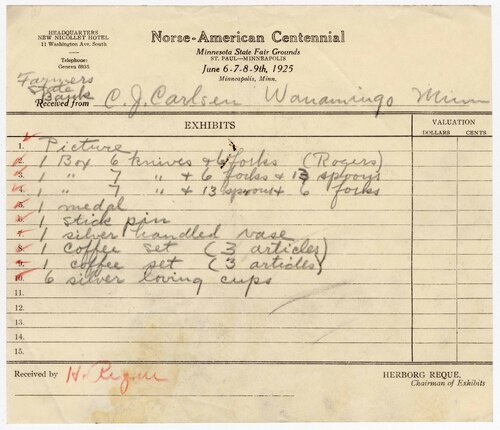 HEADQUARTERS
NEW NICOLLET HOTEL
11 Washington Ave, South
Telephone:
Geneva 6835
Norse-American Centennial
Minnesota State Fair Grounds
ST. PAUL—MINNEAPOLIS
June 6-7-8-9th, 1925
Minneapolis, Minn.
Farmers
State
Bank
Received from C. J. Carlsen Wanamingo Minn
EXHIBITS
VALUATION
DOLLARS CENTS
1. Picture
2. 1 Box 6 knives & 6 forks (Rogers)
3. 1 " 7 " & 6 forks & 13 spoons
4. 1 " 7 " & 13 spoons & 6 forks
5. 1 medal
6. 1 stick pin
7. 1 silver handled vase
8. 1 coffee set (3 articles)
9. 1 coffee set (3 articles)
10. 6 silver loving cups
11.
12.
13.
14.
15.
Received by H. Reque
HERBORG REQUE.
Chairman of Exhibits